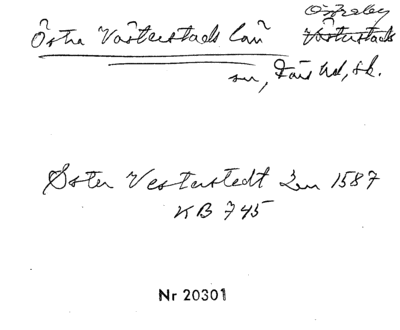 Östra Västerstads län Öveseley
Västerstads
sn, Färs hd, Sk.
Øster Vesterstedt Len 1587
KB 745
Nr 20301